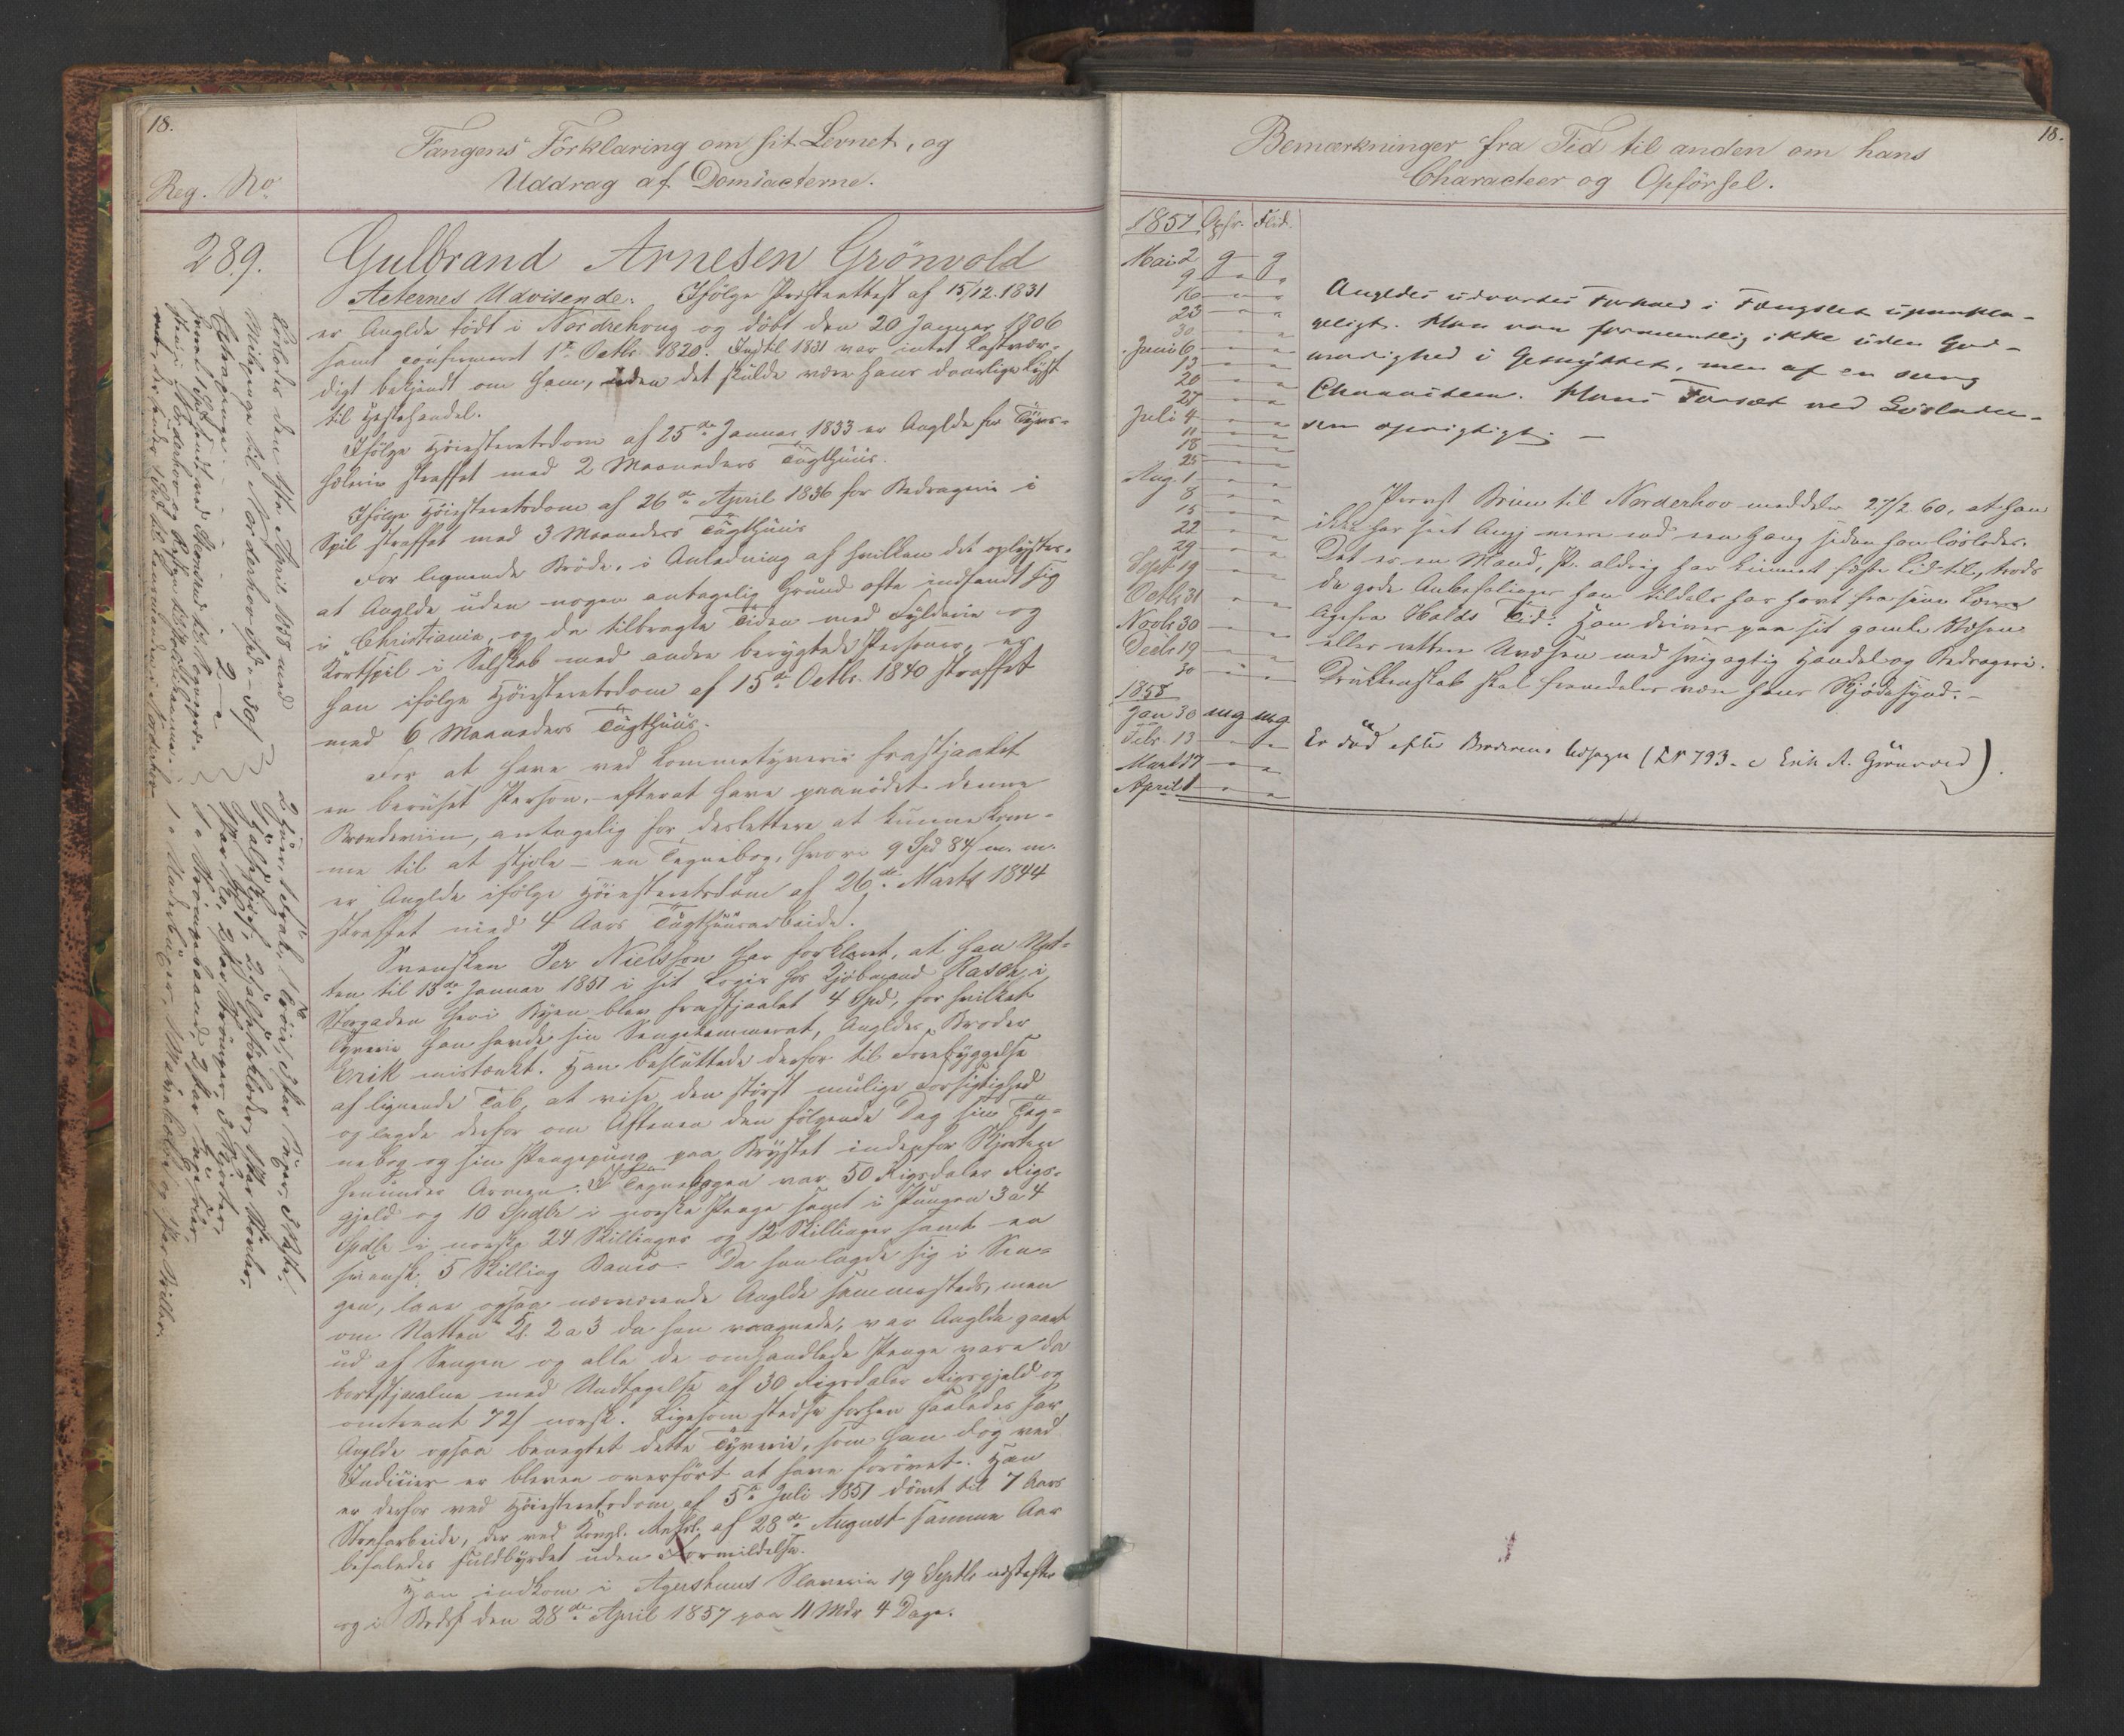 18.
Fangens Forklaring om sit Levnet, og
Uddrag af Domsacterne.
Reg. No.
289.
Gulbrand Arnesen Grönvold
Acternes Udvisende: Ifölge Præsteattest af 15/12.1831
er Anglde född i Nordrehoug og döbt den 20 Januar 1806
samt confirmeret 1ste Octbr. 1820. Indtil 1831 var intet Lastvær-
digt bekjendt om ham, uden det skulde være hans daarlige Lyst
til Hestehandel.
Ifölge Höiesteretsdom af 25de Januar 1833 er Anglde for Tyvs-
hæleri straffet med 2 Maaneders Tugthuus.
Ifölge Höiesteretsdom af 26de April 1836 for Bedragerie i
Spil straffet med 3 Maaneders Tugthuus
For lignende Bröde, i Anledning af hvilken det oplystes,
at Anglde uden nogen antagelig Grund ofte indfandt sig
i Christiania, og da tilbragte Tiden med Fylderie og
Kortspil i Selskab med andre berygtede Personer, er
han ifölge Höiesteretsdom af 15de Octbr. 1840 straffet
med 6 Maaneders Tugthuus.
For at have ved Lommetyverie frastjaalet
en beruset Person, efterat have paanödet denne
Brændeviin, antagelig for deslettere at kunne kom-
me til at stjæle – en Tegnebog, hvori 9 Spd 84 s m. m.
er Anglde ifölge Höiesteretsdom af 26de Marts 1844
straffet med 4 Aars Tugthuusarbeide.
Svensken Per Nielsson har forklaret, at han Nat-
ten til 13de Januar 1851 i sit Logis hos Kjöbmand Rasch i
Storgaden heri Byen blev frastjaalet 4 Spd, for hvilket
Tyverie han havde sin Sengekammerat, Angldes Broder
Erik mistænkt. Han besluttede derfor til Forebyggelse
af lignende Tab, at vise den störst mulige Forsigtighed
og lagde derfor om Aftenen den fölgende Dag sin Teg-
nebog og sin Pengepung paa Brystet indenfor Skjorten
henunder Armen. I Tegnebogen var 50 Rigsdaler Rigs-
gjeld og 10 Spdlr i norske Penge samt i Pungen 3 a 4
Spdlr i norske 24 Skillinger og 12 Skillinger samt en
svensk 5 Skilling Banco. Da han lagde sig i Sen-
gen, laae ogsaa nærværende Anglde sammesteds, men
om Natten Kl. 2 a 3 da han vaagnede, var Anglde gaaet
ud af Sengen og alle de omhandlede Penge vare da
bortstjaalne med Undtagelse af 30 Rigsdaler Rigsgjeld og
omtrent 72 s norsk. Ligesom stedse forhen saaledes har
Anglde ogsaa benegtet dette Tyverie, som han dog ved
Indicier er bleven overfört at have forövet. Han
er derfor ved Höiesteretsdom af 5te Juli 1851 dömt til 7 Aars
Strafarbeide, der ved Kongl. Resol. af 28de August samme Aar
befaledes fuldbyrdet uden Formildelse.
Han indkom i Agershuus Slaverie 19 Septbr næstefter
og i Bodsf den 28de April 1857 paa 11 Mdr 4 Dage.
Löslades den 1ste April 1858 med
18.
Bemærkninger fra Tid til anden om hans
Characteer og Opförsel.
1857 Opfr. Flid.
Mai 2 g g
9 " "
16 " "
23 " "
30 " "
Juni 6 " "
13 " "
20 " "
27 " "
Juli 4 " "
11 " "
18 " "
25 " "
Aug. 1 " "
8 " "
15 " "
22 " "
29 " "
Septr 19 " "
Octbr 31 " "
Novbr 30 " "
Decbr 19 " "
30 " "
1858
Jan 30 mg mg
Febr. 13 " "
Marts 27 " "
April 1 " "
Angldes udvortes Forhold i Fængslet upaakla-
geligt. Han var formentlig ikke uden God-
modighed i Gemyttet, men af en svag
Characteer. Hans Forsæt ved Lösladel-
sen oprigtigt. –
Provst Bruun til Norderhov meddeler 27/2 60, at han
ikke har seet Angj mere end een Gang siden han löslodes.
Det er en Mand, P. aldrig har kunnet fæste Lid til, trods
de gode Anbefalinger han tildels har havt fra sine Lærere
ligefra Holds Tid. Han driver paa sit gamle Væsen
eller rettere Uvæsen med svigagtig Handel og Bedragerie.
Drukkenskab skal fremdeles være hans Skjödesynd. –
Er död efter Broderens Udsagn (No 793 - c Erik A. Grönvold).